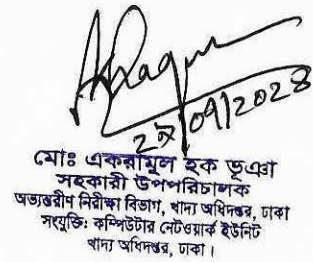 ২১/০৭/২০২৪
মোঃ একরামুল হক ভূঞা
সহকারী উপপরিচালক
অভ্যন্তরীণ নিরীক্ষা বিভাগ, খাদ্য অধিদপ্তর, ঢাকা
সংযুক্তি: কম্পিউটার নেটওয়ার্ক ইউনিট
খাদ্য অধিদপ্তর, ঢাকা।